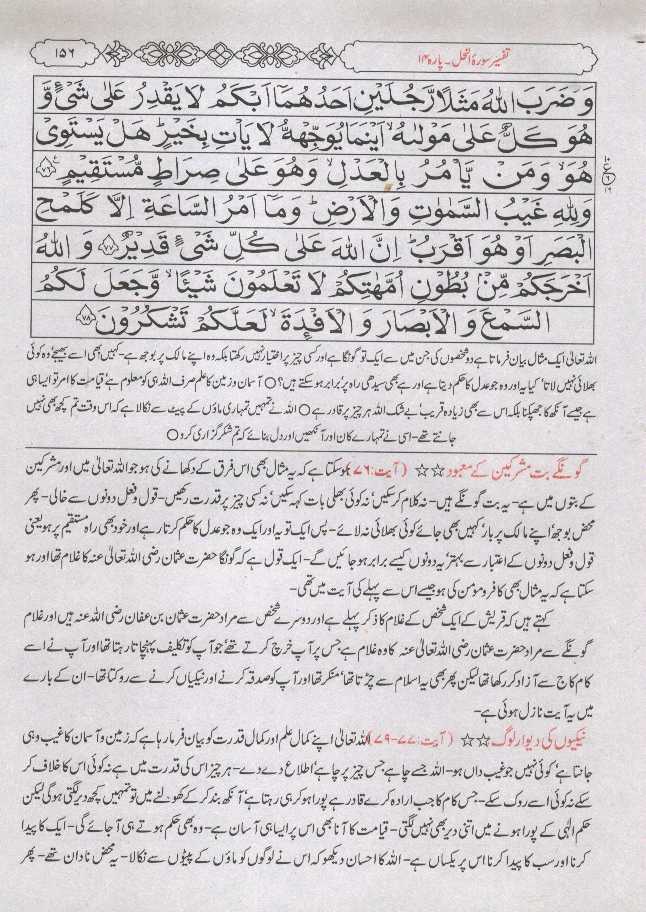 ۱۵۶
تفسیر سورۂ النحل۔ پارہ ۱۴
وَضَرَبَ اللّٰهُ مَثَلًا رَّجُلَیْنِ اَحَدُهُمَاۤ اَبْكَمُ لَا یَقْدِرُ عَلٰی شَیْءٍ وَّ
هُوَ كَلٌّ عَلٰی مَوْلٰىهُ ۙ اَیْنَمَا یُوَجِّهْهُّ لَا یَاْتِ بِخَیْرٍ ؕ هَلْ یَسْتَوِیْ
هُوَ ۙ وَمَنْ یَّاْمُرُ بِالْعَدْلِ ۙ وَهُوَ عَلٰی صِرَاطٍ مُّسْتَقِیْمٍ ۝۷۶
وَلِلّٰهِ غَیْبُ السَّمٰوٰتِ وَالْاَرْضِ ؕ وَمَاۤ اَمْرُ السَّاعَةِ اِلَّا كَلَمْحِ
الْبَصَرِ اَوْ هُوَ اَقْرَبُ ؕ اِنَّ اللّٰهَ عَلٰی كُلِّ شَیْءٍ قَدِیْرٌ ۝۷۷ وَاللّٰهُ
اَخْرَجَكُمْ مِّنْۢ بُطُوْنِ اُمَّهٰتِكُمْ لَا تَعْلَمُوْنَ شَیْئًا ۙ وَّجَعَلَ لَكُمُ
السَّمْعَ وَالْاَبْصَارَ وَالْاَفْـِٕدَةَ ۙ لَعَلَّكُمْ تَشْكُرُوْنَ ۝۷۸
اللہ تعالیٰ ایک مثال بیان فرماتا ہے دو شخصوں کی جن میں سے ایک تو گونگا ہے اور کسی چیز پر اختیار نہیں رکھتا بلکہ وہ اپنے مالک پر بوجھ ہے- کہیں بھی اسے بھیجے' وہ کوئی
بھلائی نہیں لاتا' کیا یہ اور وہ جو عدل کا حکم دیتا ہے اور ہے بھی سیدھی راہ پر' برابر ہو سکتے ہیں؟ ○ آسمان و زمین کا علم صرف اللہ ہی کو معلوم ہے' قیامت کا امر تو ایسا ہی
ہے جیسے آنکھ کا جھپکنا بلکہ اس سے بھی زیادہ قریب' بے شک اللہ ہر چیز پر قادر ہے ○ اللہ نے تمہیں تمہاری ماؤں کے پیٹ سے نکالا ہے کہ اس وقت تم کچھ بھی نہیں
جانتے تھے- اسی نے تمہارے کان اور آنکھیں اور دل بنائے کہ تم شکر گزاری کرو ○
گونگے بت مشرکین کے معبود ☆☆ (آیت:۷۶) ہو سکتا ہے کہ یہ مثال بھی اس فرق کے دکھانے کی ہو جو اللہ تعالیٰ میں اور مشرکین
کے بتوں میں ہے- یہ بت گونگے ہیں- نہ کلام کر سکیں' نہ کوئی بھلی بات کہہ سکیں' نہ کسی چیز پر قدرت رکھیں- قول و فعل دونوں سے خالی- پھر
محض بوجھ' اپنے مالک پر بار' کہیں بھی جائے کوئی بھلائی نہ لائے- پس ایک تو یہ اور ایک وہ جو عدل کا حکم کرتا رہے اور خود بھی راہ مستقیم پر ہو یعنی
قول و فعل دونوں کے اعتبار سے بہتر' یہ دونوں کیسے برابر ہو جائیں گے- ایک قول ہے کہ گونگا حضرت عثمان رضی اللہ تعالیٰ عنہ کا غلام تھا اور ہو
سکتا ہے کہ یہ مثال بھی کافر و مومن کی ہو جیسے اس سے پہلے کی آیت میں تھی-
کہتے ہیں کہ قریش کے ایک شخص کے غلام کا ذکر پہلے ہے اور دوسرے شخص سے مراد حضرت عثمان بن عفان رضی اللہ عنہ ہیں اور غلام
گونگے سے مراد حضرت عثمان رضی اللہ تعالیٰ عنہ کا وہ غلام ہے جس پر آپ خرچ کرتے تھے' جو آپ کو تکلیف پہنچاتا رہتا تھا اور آپ نے اسے
کام کاج سے آزاد کر رکھا تھا لیکن پھر بھی یہ اسلام سے چڑتا تھا' منکر تھا اور آپ کو صدقہ کرنے اور نیکیاں کرنے سے روکتا تھا- ان کے بارے
میں یہ آیت نازل ہوئی ہے-
نیکیوں کی دیوار لوگ ☆☆ (آیت:۷۷-۷۹) اللہ تعالیٰ اپنے کمال علم اور کمال قدرت کو بیان فرما رہا ہے کہ زمین و آسمان کا غیب وہی
جانتا ہے' کوئی نہیں جو غیب داں ہو- اللہ جسے چاہے' جس چیز پر چاہے' اطلاع دے دے- ہر چیز اس کی قدرت میں ہے نہ کوئی اس کا خلاف کر
سکے نہ کوئی اسے روک سکے- جس کام کا جب ارادہ کرے قادر ہے پورا ہو کر ہی رہتا ہے' آنکھ بند کر کے کھولنے میں تو تمہیں کچھ دیر لگتی ہو گی لیکن
حکم الٰہی کے پورا ہونے میں اتنی دیر بھی نہیں لگتی- قیامت کا آنا بھی اس پر ایسا ہی آسان ہے- وہ بھی حکم ہوتے ہی آ جائے گی- ایک کا پیدا
کرنا اور سب کا پیدا کرنا اس پر یکساں ہے- اللہ کا احسان دیکھو کہ اس نے لوگوں کو ماؤں کے پیٹوں سے نکالا- یہ محض نادان تھے- پھر